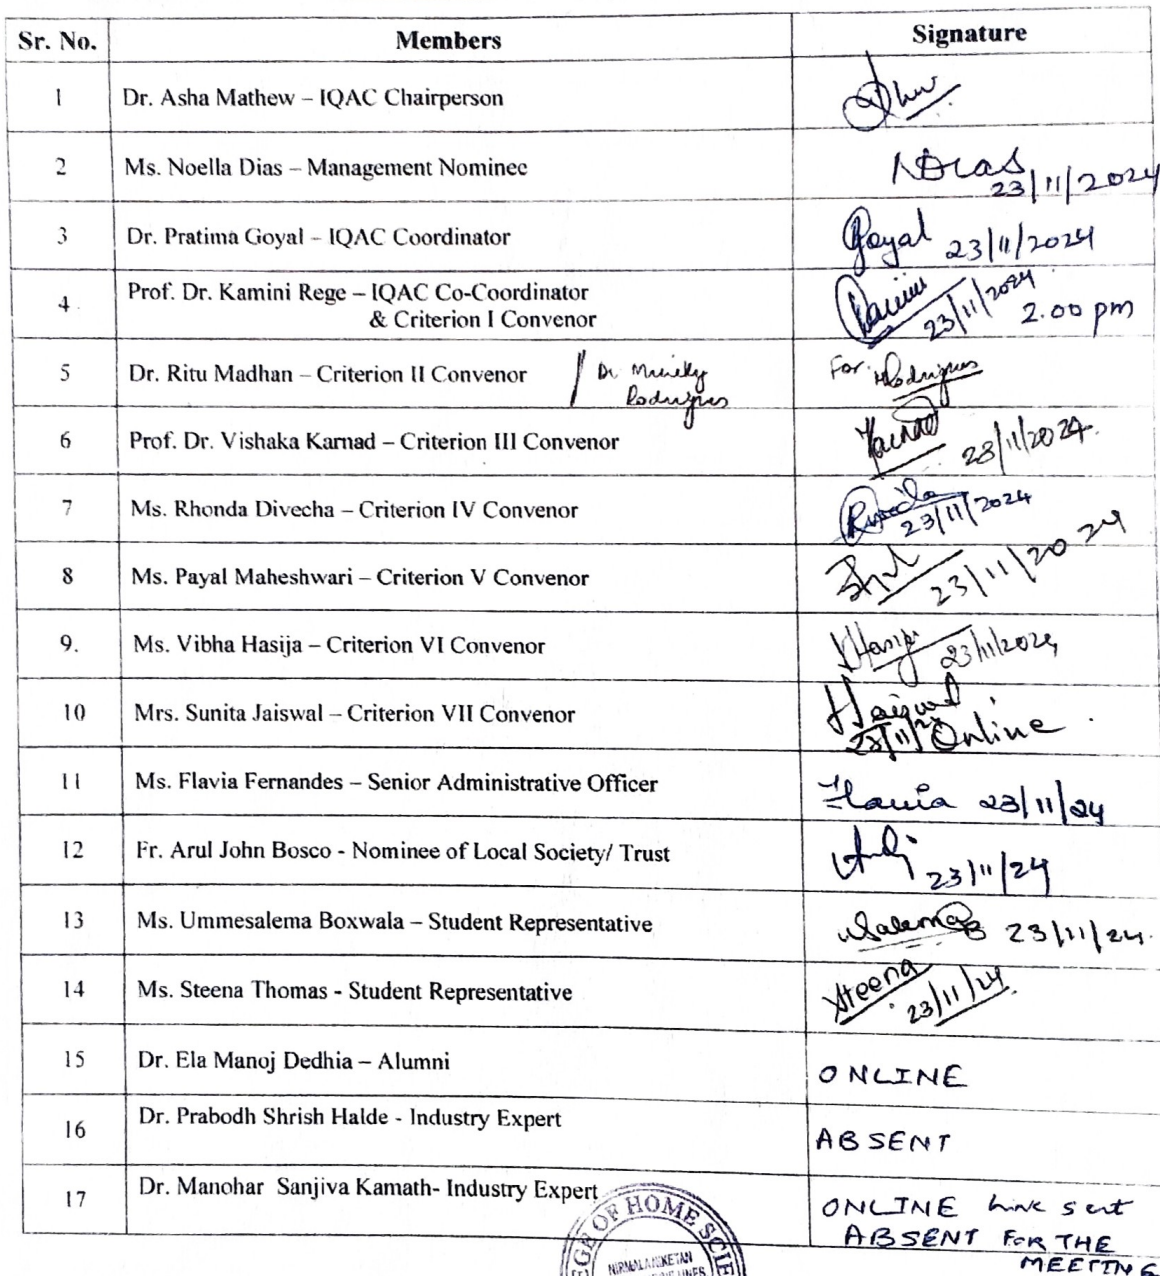 Sr. No. Members Signature
1 Dr. Asha Mathew – IQAC Chairperson
2 Ms. Noella Dias – Management Nominee NDias 23/11/2024
3 Dr. Pratima Goyal – IQAC Coordinator Goyal 23/11/2024
4. Prof. Dr. Kamini Rege – IQAC Co-Coordinator
& Criterion I Convenor 23/11/2024 2.00 pm
5 Dr. Ritu Madhan – Criterion II Convenor / Dr. For. MRodrigues
Rodrigues
6 Prof. Dr. Vishaka Karnad – Criterion III Convenor Karnad 23/11/2024.
7 Ms. Rhonda Divecha – Criterion IV Convenor 23/11/2024
8 Ms. Payal Maheshwari – Criterion V Convenor 23/11/2024
9. Ms. Vibha Hasija – Criterion VI Convenor VHasija 23/11/2024
10 Mrs. Sunita Jaiswal – Criterion VII Convenor Jaiswal
23/11/24 Online
11 Ms. Flavia Fernandes – Senior Administrative Officer Flavia 23/11/24
12 Fr. Arul John Bosco - Nominee of Local Society/ Trust 23/11/24
13 Ms. Ummesalema Boxwala – Student Representative 23/11/24.
14 Ms. Steena Thomas - Student Representative Steena
23/11/24
15 Dr. Ela Manoj Dedhia – Alumni ONLINE
16 Dr. Prabodh Shrish Halde - Industry Expert ABSENT
17 Dr. Manohar Sanjiva Kamath- Industry Expert ONLINE link sent
ABSENT FOR THE
MEETING
OF HOME
NIRMALA NIKETAN